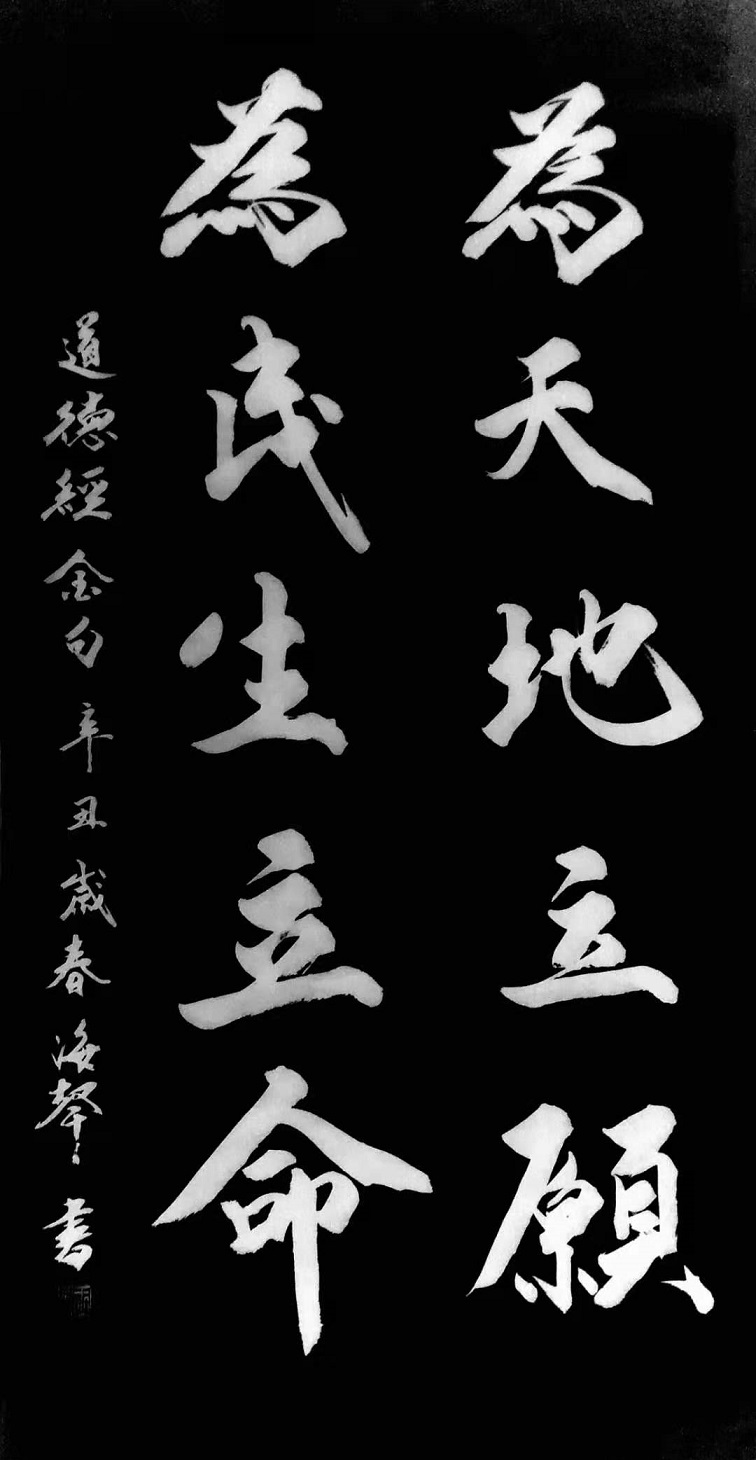 為天地立願
為民生立命
道德經金句 辛丑歲春 海聲書